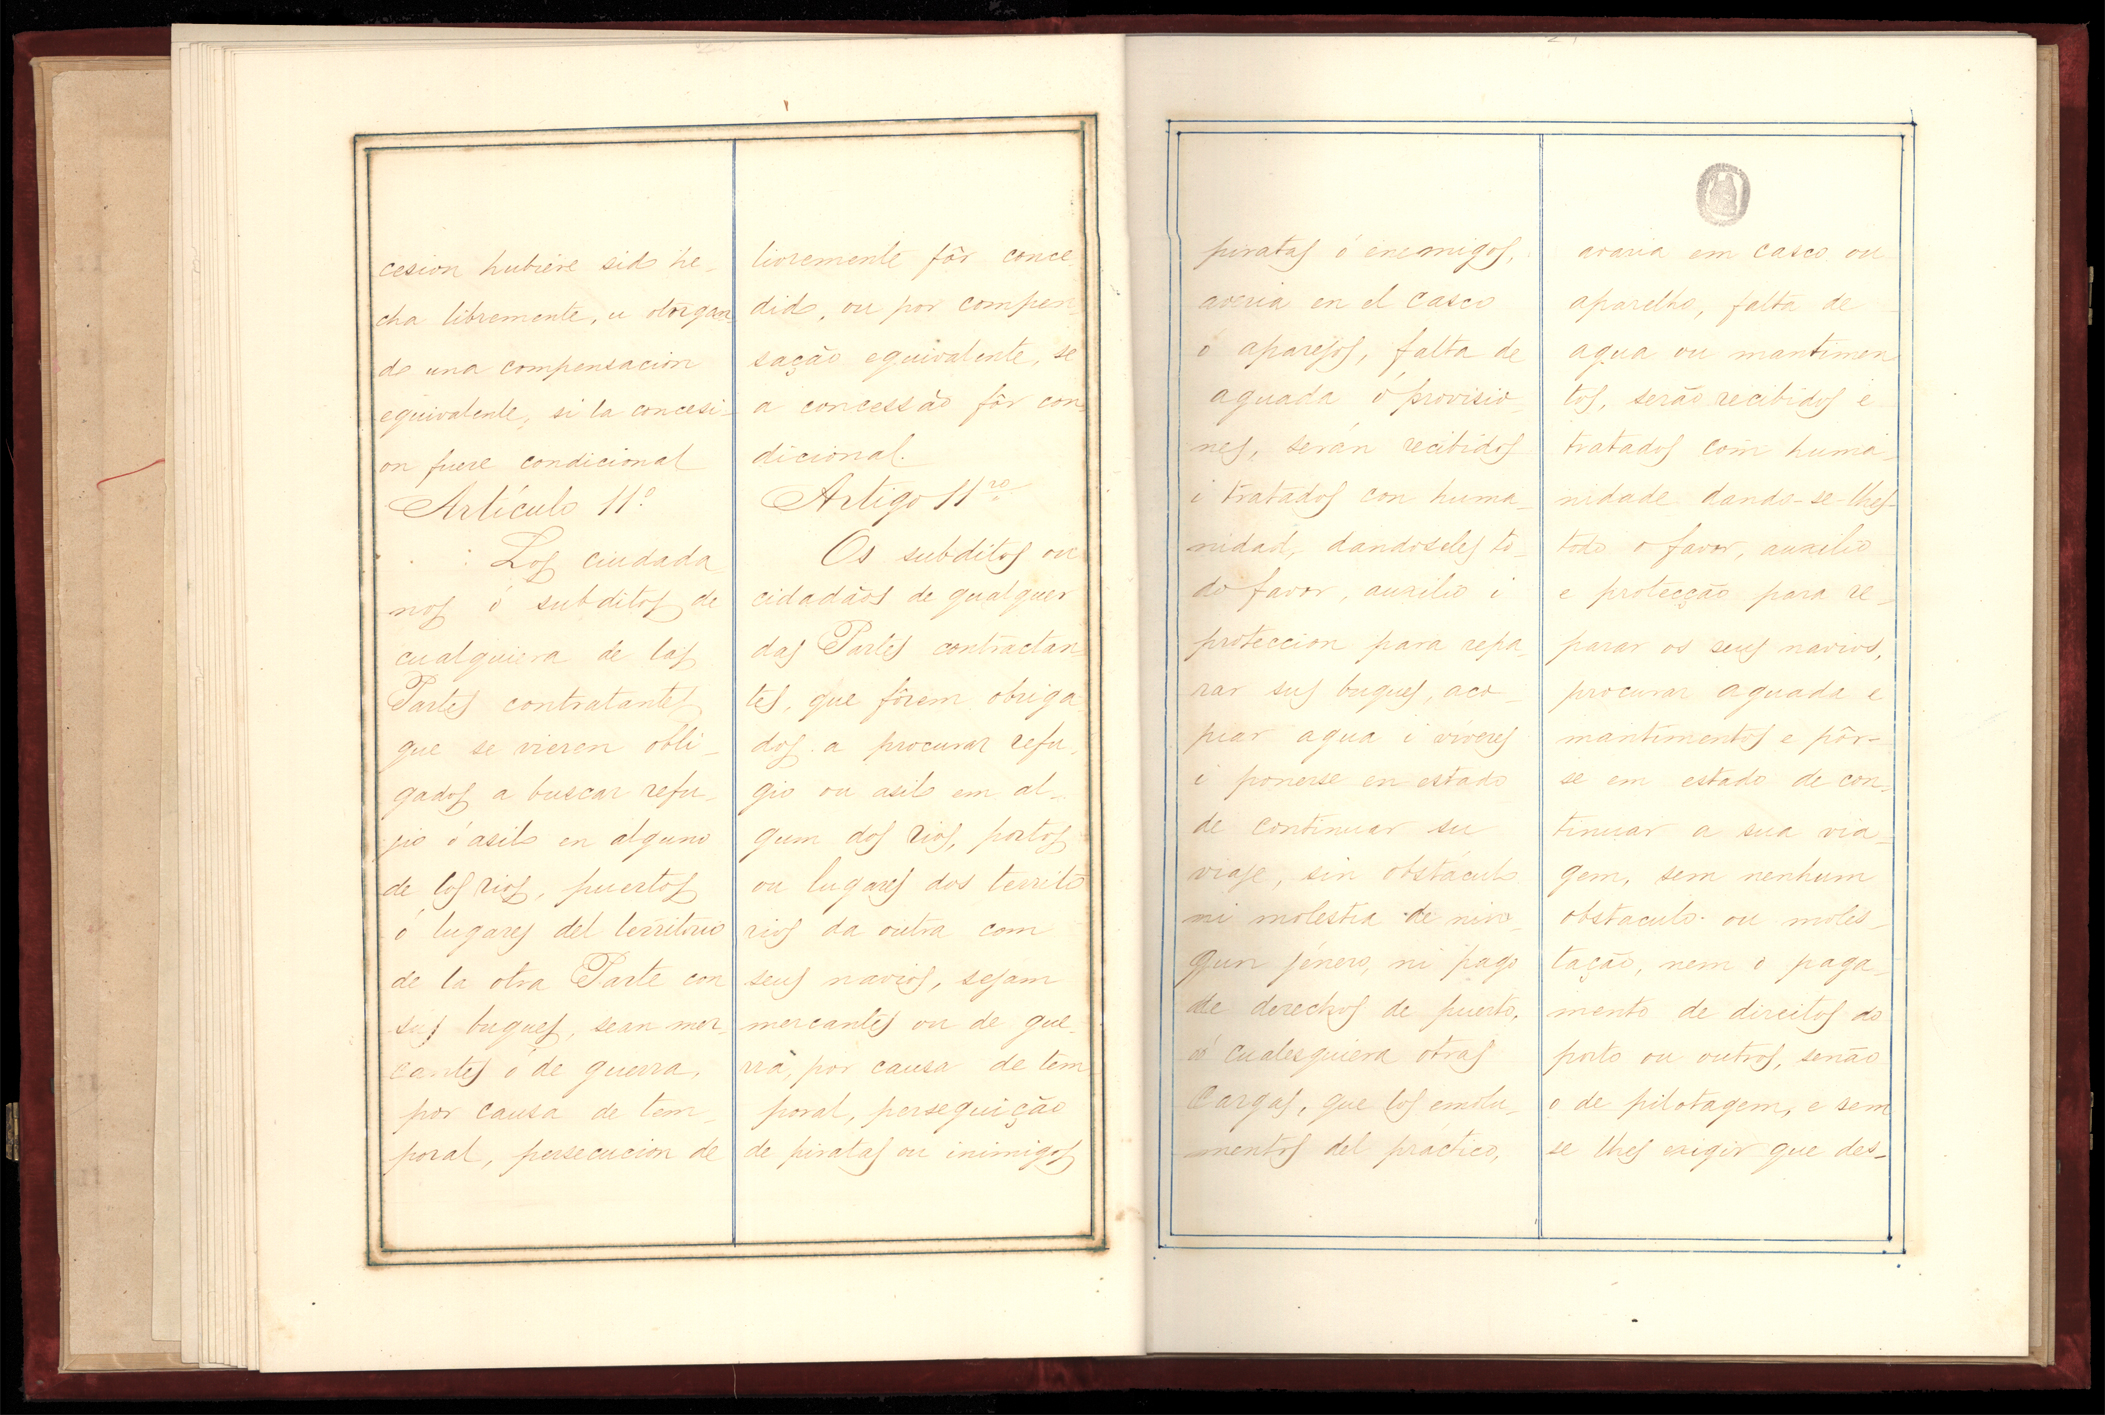 cesion hubiere sido he-
cha libremente, u otorgan-
do una compensacion
equivalente, si la concesi-
on fuere condicional
Artículo 11º
Los ciudada
nos ó subditos de
cualquiera de las
Partes contratantes
que se vieren obli-
gados a buscar refu-
jio ó asilo en alguno
de los rios, puertos
ó lugares del territorio
de la otra Parte con
sus buques, sean mer-
cantes ó de guerra,
por causa de tem-
poral, persecucion de
livremente fôr conce-
dido, ou por compen-
sação equivalente, se
a concessão fôr con-
dicional.
Artigo 11ro
Os subditos ou
cidadãos de qualquer
das Partes contractan-
tes, que fôrem obriga-
dos a procurar refu-
gio ou asilo em al-
gum dos rios, portos
ou lugares dos territo
rios da outra com
seus navios, sejam
mercantes ou de gue-
rra, por causa de tem
poral, perseguição
de piratas ou inimigos
piratas ó enemigos,
averia en el casco
ó aparejos, falta de
aguada ó provisio-
nes, serán recibidos
i tratados con huma-
nidad, dandoseles to-
do favor, auxilio i
proteccion para repa-
rar sus buques, aco-
piar agua i víveres
i ponerse en estado
de continuar su
viaje, sin obstáculo
ni molestia de nin-
gun jénero, ni pago
de derechos de puerto,
ó cualesquiera otras
Cargas, que los emolu-
mentos del práctico,
avaria em casco ou
aparelho, falta de
agua ou mantimen
tos, serão recibidos e
tratados com huma-
nidade dando-se-lhes-
todo o favor, auxilio
e protecção para re-
parar os seus navios,
procurar aguada e
mantimentos e pôr-
se em estado de con-
tinuar a sua via-
gem, sem nenhum
obstaculo ou moles-
tação, nem o paga-
mento de direitos do
porto ou outros, senão
o de pilotagem, e sem
se lhes exigir que des-